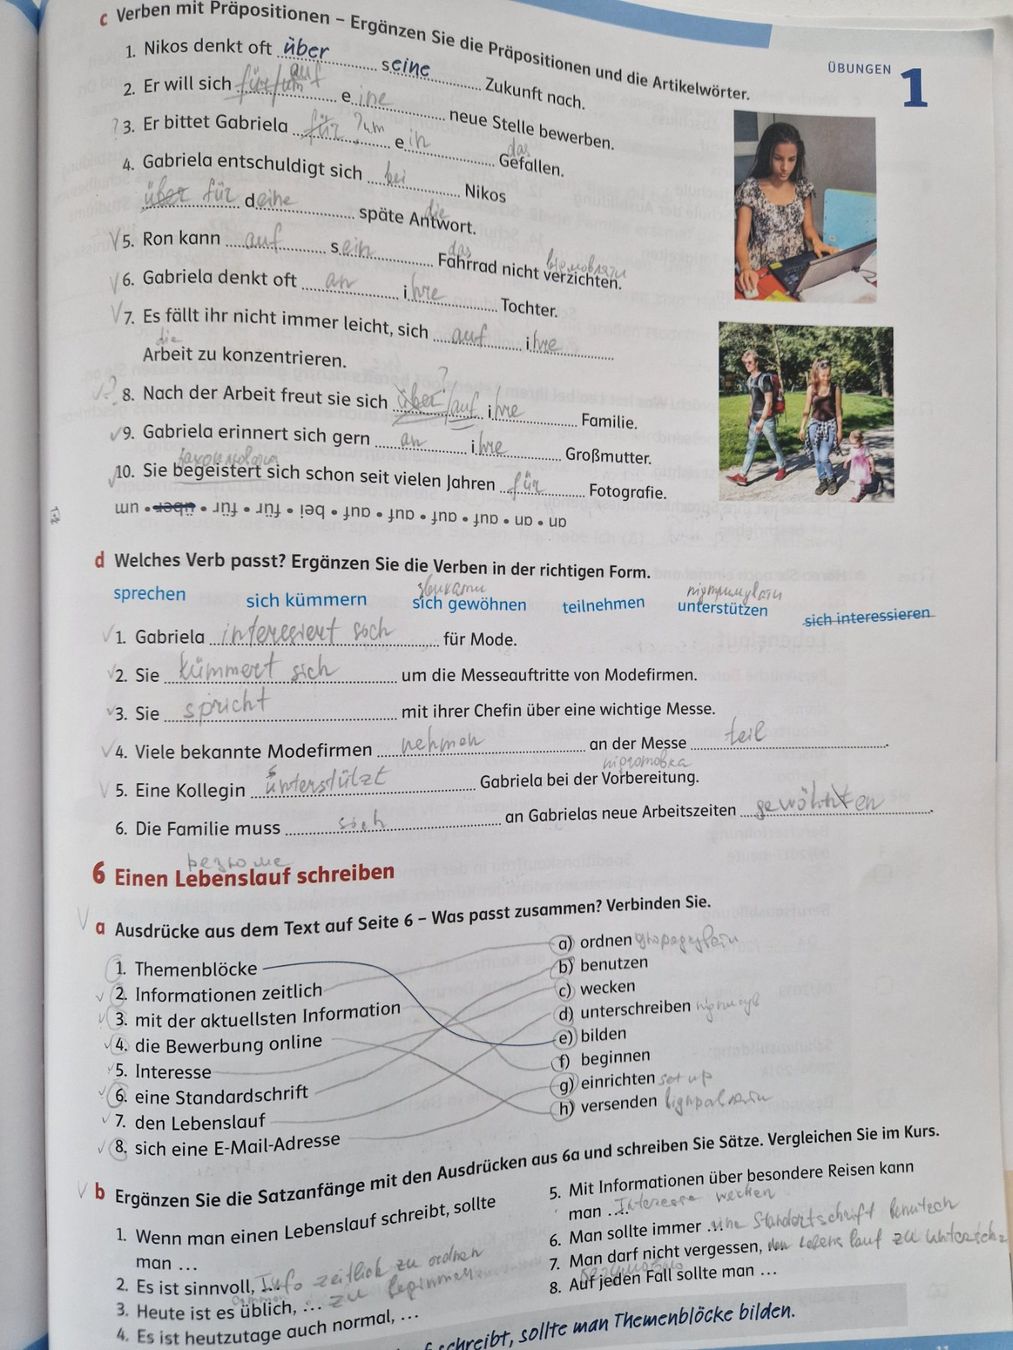 c Verben mit Präpositionen – Ergänzen Sie die Präpositionen und die Artikelwörter.
ÜBUNGEN 1
1. Nikos denkt oft über seine Zukunft nach.
auf
2. Er will sich für/um eine neue Stelle bewerben.
? 3. Er bittet Gabriela für ?um ein Gefallen.
das
4. Gabriela entschuldigt sich bei Nikos
über für deine späte Antwort.
die
√ 5. Ron kann auf sein Fahrrad nicht verzichten.
das відмовляти
√ 6. Gabriela denkt oft an ihre Tochter.
√ 7. Es fällt ihr nicht immer leicht, sich auf ihre
die
Arbeit zu konzentrieren.
√? 8. Nach der Arbeit freut sie sich über/auf ihre Familie.
?
√ 9. Gabriela erinnert sich gern an ihre Großmutter.
10. Sie begeistert sich schon seit vielen Jahren für Fotografie.
an • an • auf • auf • auf • auf • bei • für • für • über • um
d Welches Verb passt? Ergänzen Sie die Verben in der richtigen Form.
sprechen sich kümmern sich gewöhnen teilnehmen unterstützen sich interessieren
√ 1. Gabriela interesiert sich für Mode.
√ 2. Sie kümmert sich um die Messeauftritte von Modefirmen.
√ 3. Sie spricht mit ihrer Chefin über eine wichtige Messe.
√ 4. Viele bekannte Modefirmen nehmen an der Messe teil.
√ 5. Eine Kollegin unterstützt Gabriela bei der Vorbereitung.
6. Die Familie muss sich an Gabrielas neue Arbeitszeiten gewöhnten.
резюме
6 Einen Lebenslauf schreiben
√ a Ausdrücke aus dem Text auf Seite 6 – Was passt zusammen? Verbinden Sie.
1. Themenblöcke
√ 2. Informationen zeitlich
√ 3. mit der aktuellsten Information
√ 4. die Bewerbung online
√ 5. Interesse
√ 6. eine Standardschrift
√ 7. den Lebenslauf
√ 8. sich eine E-Mail-Adresse
a) ordnen
b) benutzen
c) wecken
d) unterschreiben
e) bilden
f) beginnen
g) einrichten set up
h) versenden
√ b Ergänzen Sie die Satzanfänge mit den Ausdrücken aus 6a und schreiben Sie Sätze. Vergleichen Sie im Kurs.
1. Wenn man einen Lebenslauf schreibt, sollte
man ...
2. Es ist sinnvoll, ... Info zeitlich zu ordnen
3. Heute ist es üblich, ... zu beginnen
4. Es ist heutzutage auch normal, ...
5. Mit Informationen über besondere Reisen kann
man ... Interesse wecken
6. Man sollte immer ... eine Standortschrift benutzen
7. Man darf nicht vergessen, den Lebenslauf zu
8. Auf jeden Fall sollte man ...
schreibt, sollte man Themenblöcke bilden.